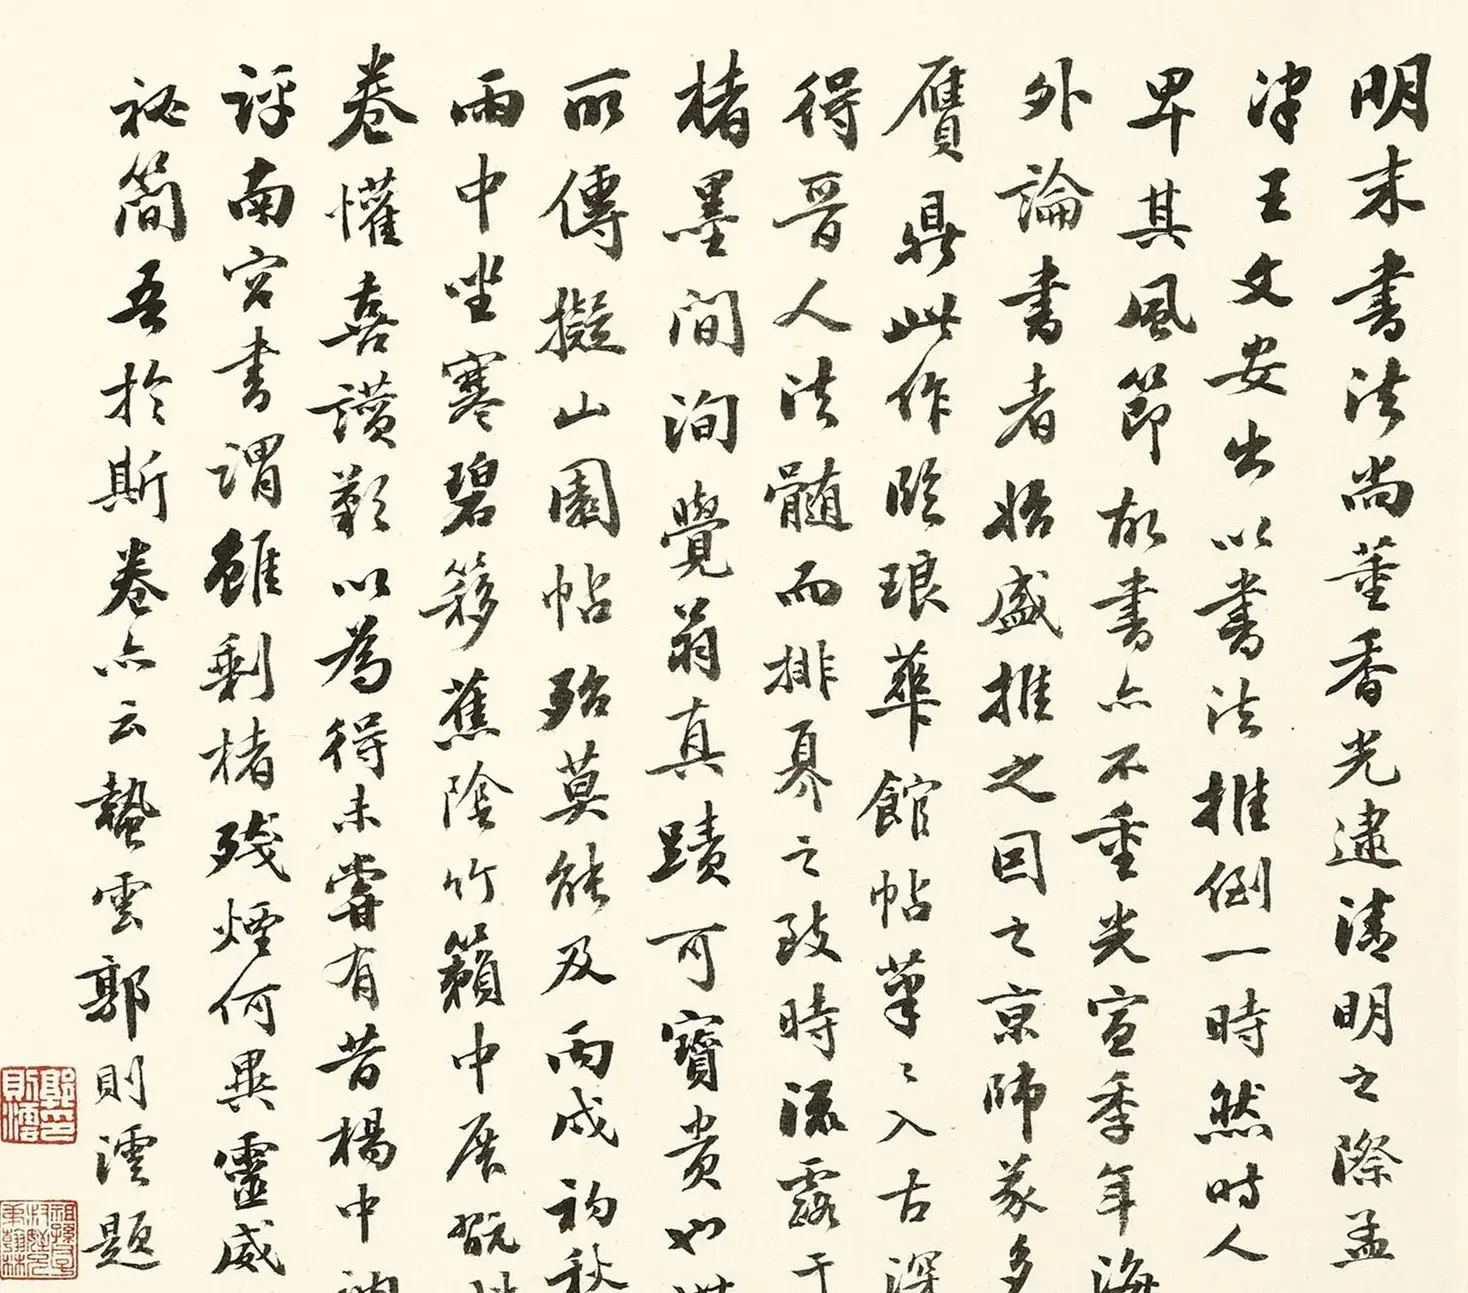 明末書法尚董香光逮清明之際孟
津王文安出以書法推倒一時然時人
卑其風節故書亦不重光宣季年海
外論書者始盛推之因之京師豪多
贋鼎此作臨琅華館帖筆〻入古深
得晉人法髓而排奡之致時流露于
楮墨間洵覺翁真蹟可寶貴也
所傳擬山園帖殆莫能及丙戌初秋
雨中坐寒碧簃蕉陰竹籟中展翫
卷懽喜讚歎以為得未嘗有昔楊中
評南宮書謂雖剩楮殘煙何異靈威
祕簡吾於斯卷亦云蟄雲郭則澐題
郭則澐印